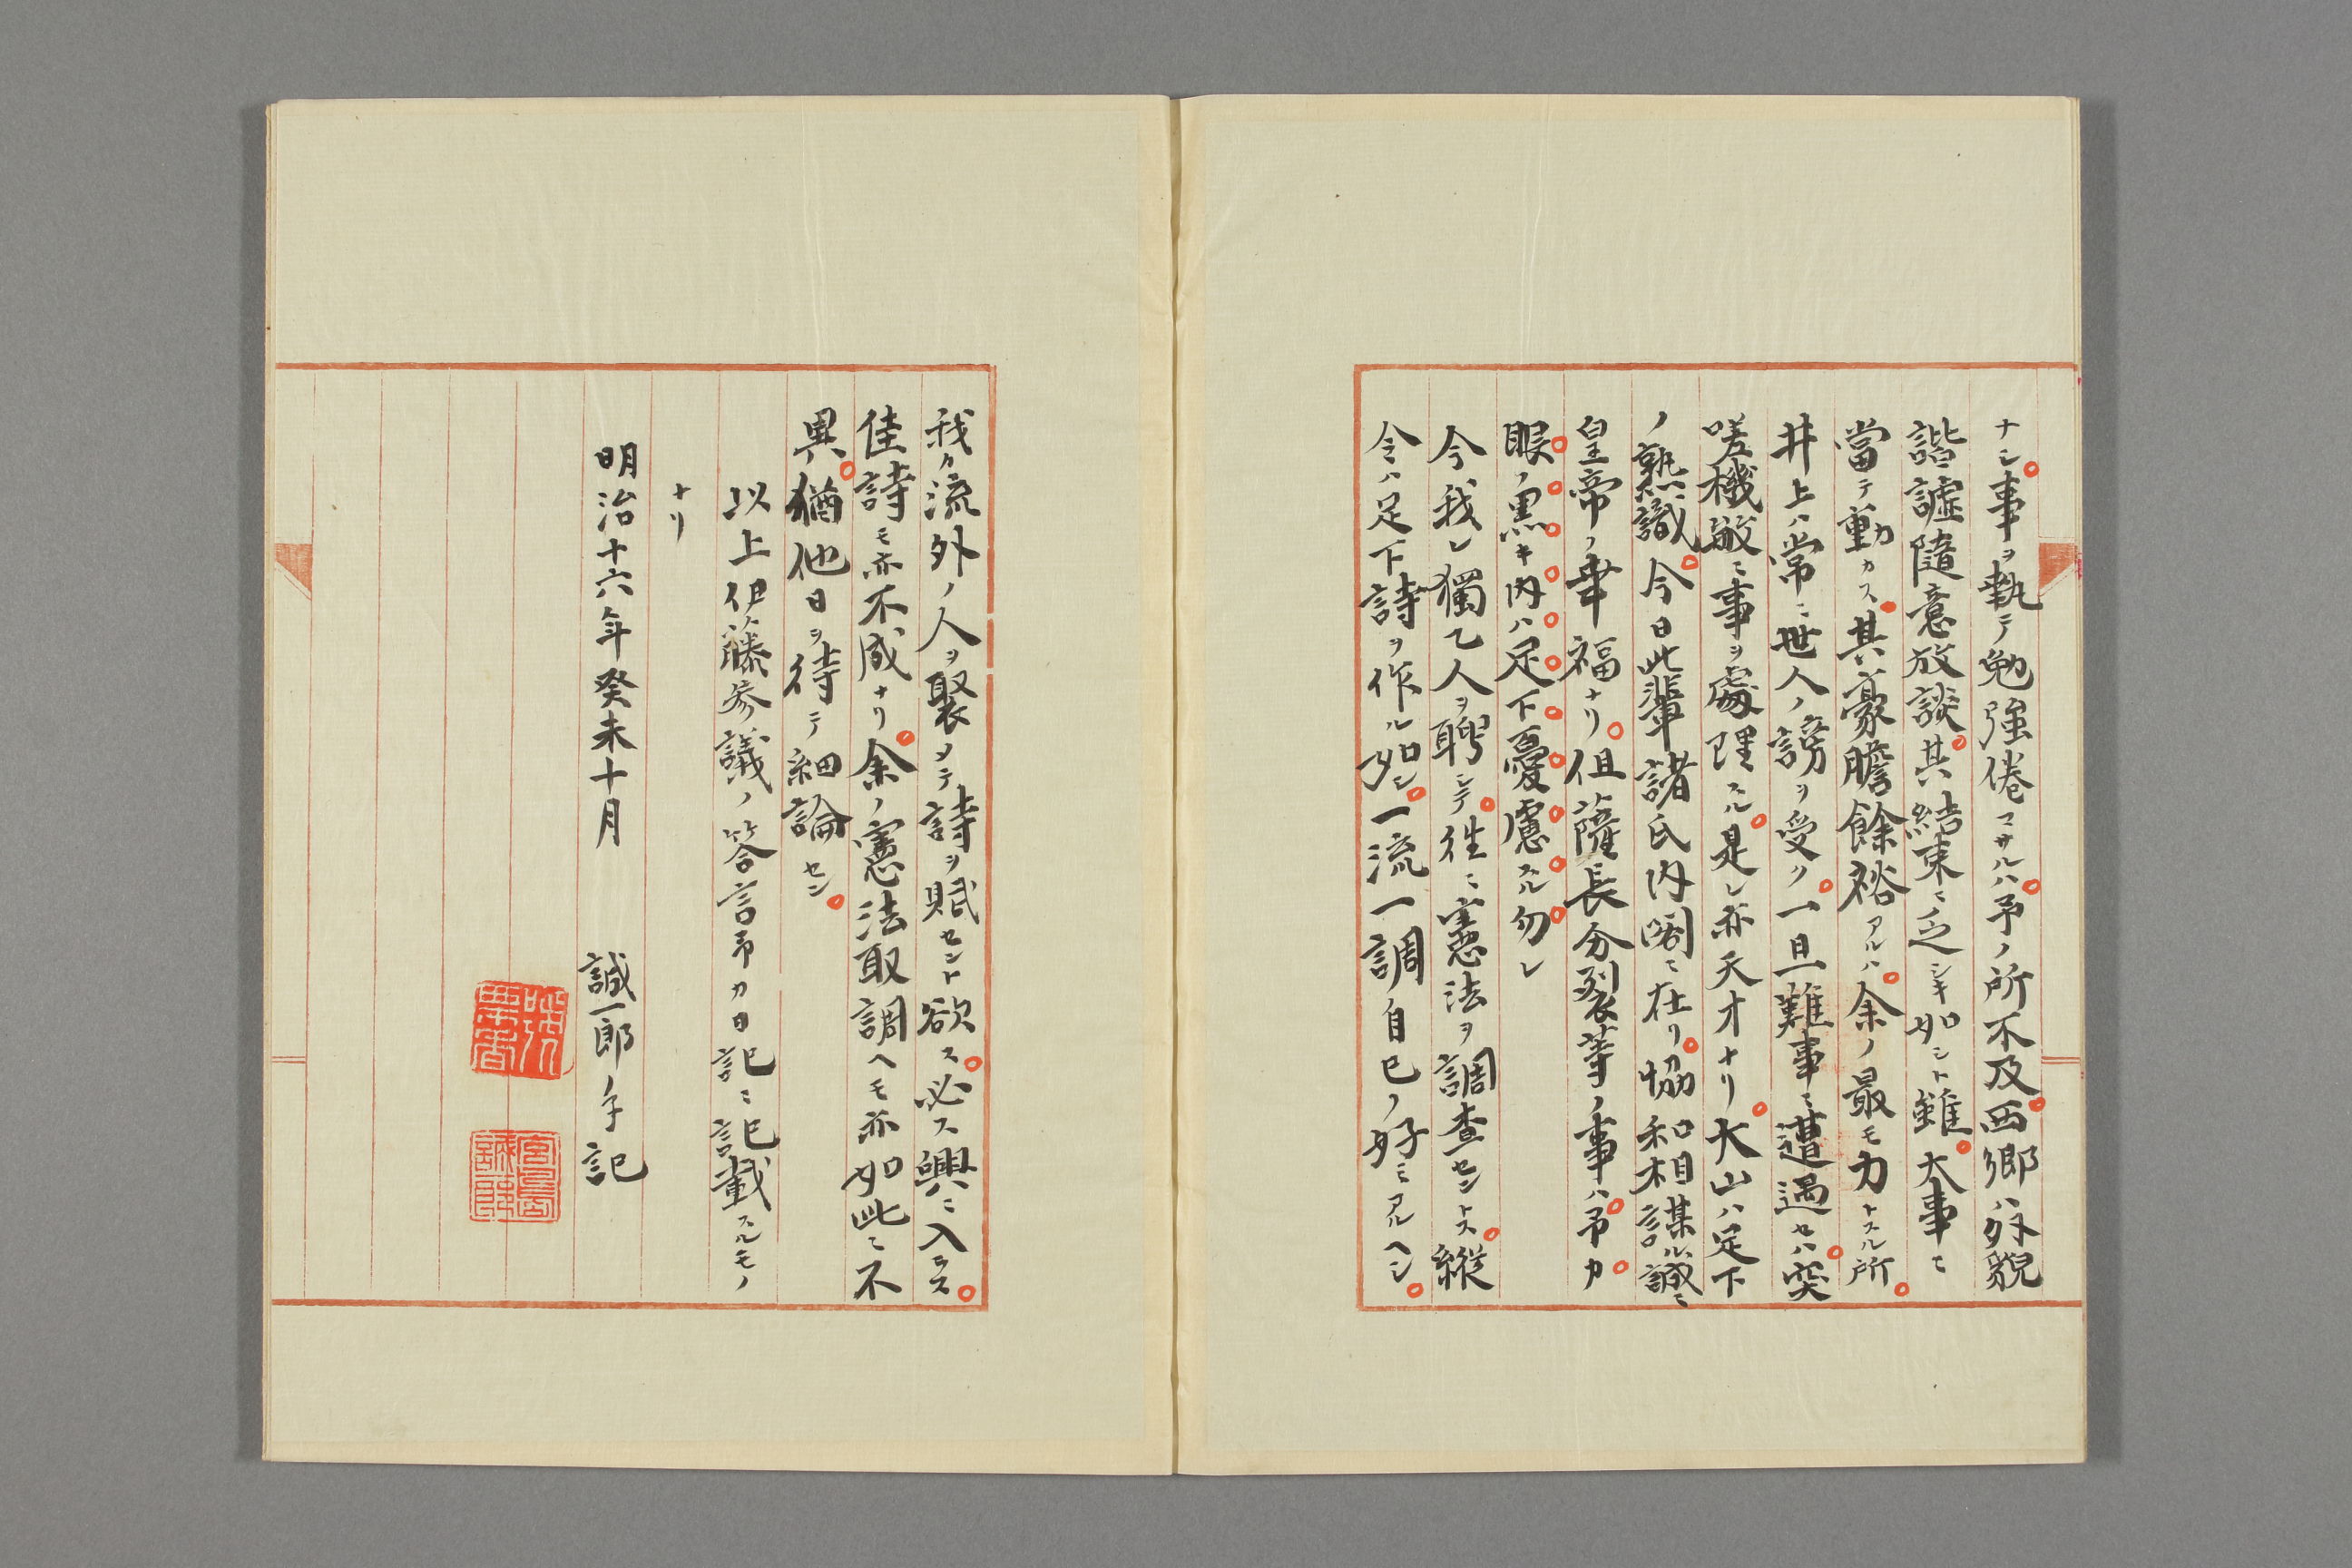 ナシ事ヲ執テ勉強倦マサルハ予ノ所不及西郷ハ外貌
諧謔随意放談其結束ニ乏シキ如シト雖大事ニ
當テ動カス其豪膽餘裕アルハ余ノ最モ力トスル所
井上ハ常ニ世人ノ謗ヲ受ク一旦難事ニ遭遇セハ突
嗟機敏ニ事ヲ處理スル是レ亦天才ナリ大山ハ足下
ノ熟識今日此輩諸氏内閣ニ在リ協和相謀ル誠ニ
皇帝ノ幸福ナリ但薩長分裂等ノ事ハ予カ
眼ノ黒キ内ハ足下憂慮スル勿レ
今我レ獨乙人ヲ聘シテ往ニ憲法ヲ調査セントス縦
令ハ足下詩ヲ作ル如シ一流一調自己ノ好ミアルヘシ
我カ流外ノ人ヲ聚メテ詩ヲ賦セント欲ス必ス興ニ入ラス
佳詩モ亦不成ナリ余ノ憲法取調ヘモ亦如此ニ不
異猶他日ヲ待テ細論セン
以上伊藤参議ノ答言予カ日記ニ記載スルモノ
ナリ
明治十六年癸未十月 誠一郎手記
宮島誠一郎